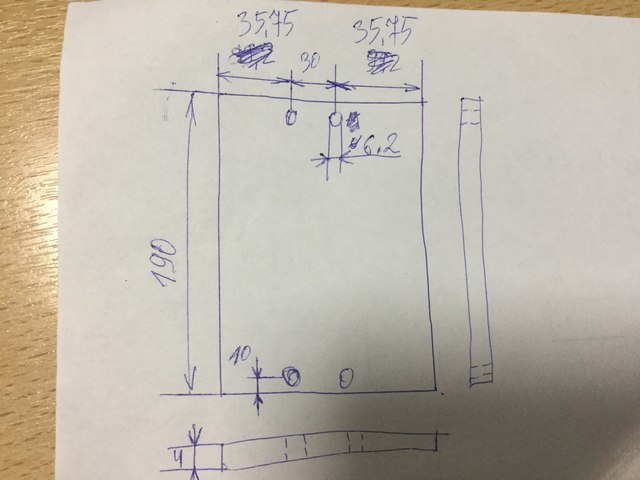 35,75 30 35,75
6.2
190
10
4